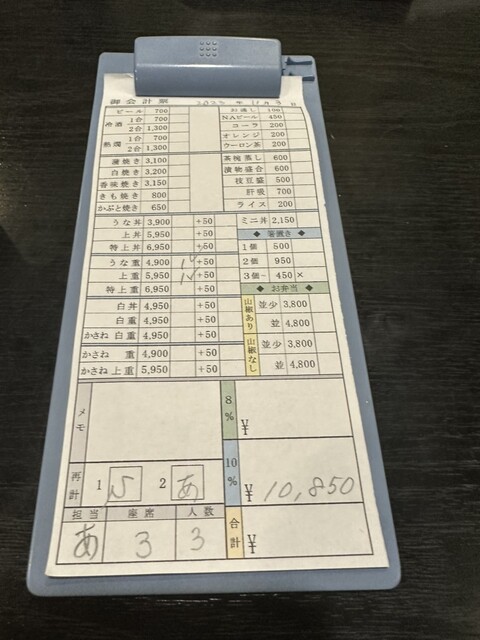 御会計票 年 月 日
ビール 700
冷酒 1合 700
2合 1,300
熱燗 1合 700
2合 1,300
お通し 100
NAビール 450
コーラ 200
オレンジ 200
ウーロン茶 200
蒲焼き 3,100
白焼き 3,200
香味焼き 3,150
きも焼き 800
かぶと焼き 650
茶碗蒸し 600
漬物盛合 600
枝豆盛 500
肝吸 700
ライス 200
うな丼 3,900 +50
上丼 5,950 +50
特上丼 6,950 +50
うな重 4,900 +50
上重 5,950 +50
特上重 6,950 +50
白丼 4,950 +50
白重 4,950 +50
かさね 白重 4,990 +50
かさね 重 4,900 +50
かさね 上重 5,950 +50
ミニ丼 2,150
◆ 箸置き ◆
1個 500
2個 950
3個~ 450 ×
◆ お弁当 ◆
山椒あり 並少 3,800
並 4,800
山椒なし 並少 3,800
並 4,800
メモ
8% ¥
10% ¥ 10,850
再計 1 2 あ
担当 座席 人数
あ 3 3
合計 ¥